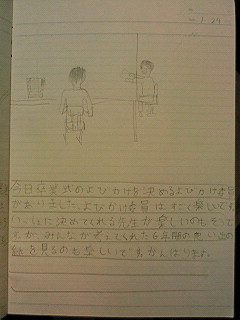 1.24
今日卒業式のよびかけを決めるよびかけ委員
がありました。よびかけ委員はすごく楽しいです。
いっしょに決めてくれる先生が楽しいのもそうで
すが、みんながそうしてくれた6年間の思い出の
を見るのも楽しいです。がんばります。